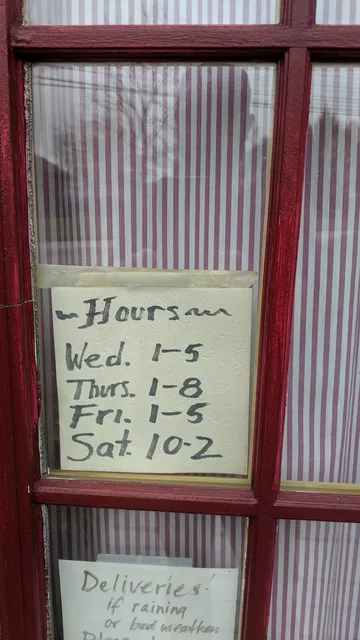 ~Hours~~
Wed. 1-5
Thurs. 1-8
Fri. 1-5
Sat. 10-2
Deliveries!
if raining
or bad weather
Please